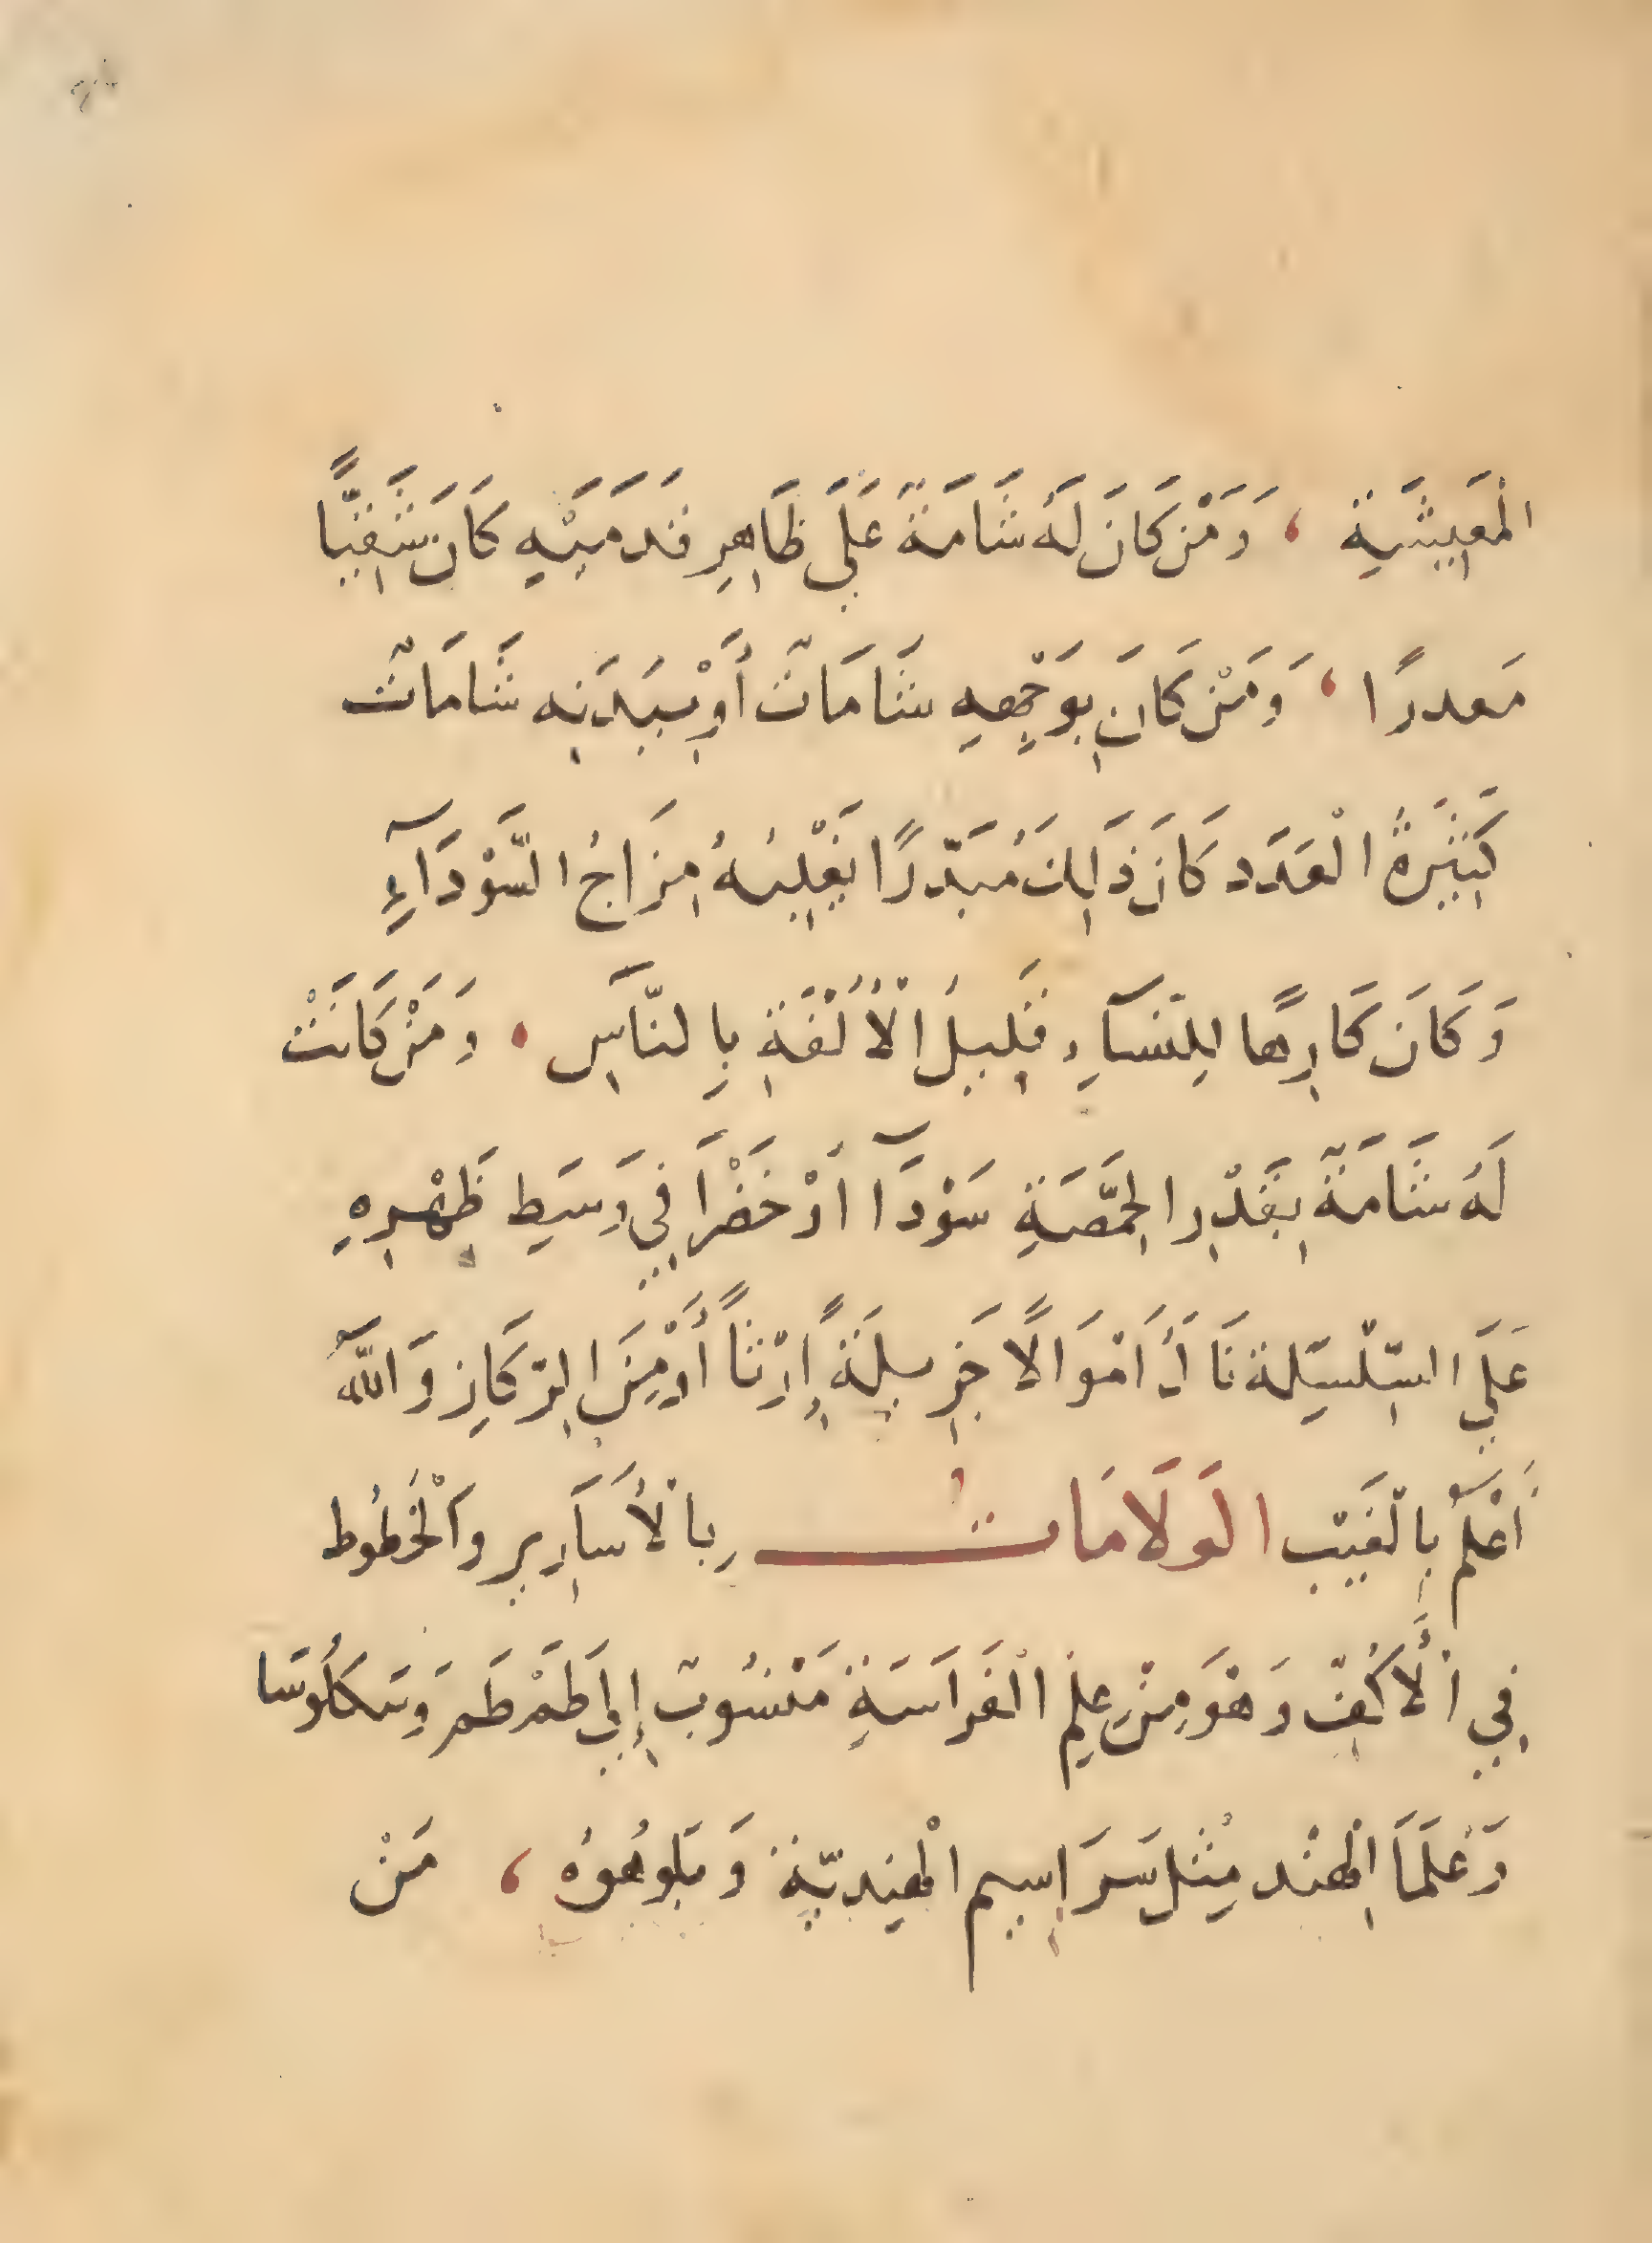 الْمَعِيشَةِ ، وَمَنْ كَانَ لَهُ شَامَةٌ عَلَى ظَاهِرِ قَدَمَيْهِ كَانَ شَقِيًّا
مَعدرًا ، وَمَنْ كَانَ بِوَجْهِهِ شَامَاتٌ أَوْ بِبَدَنِهِ شَامَاتٌ
كَثِيرَةُ الْعَدَد كَانَ ذَلِكَ مُبَدِّرًا يَغْلِبُهُ مِزَاجُ السَّوْدَآءِ
وَكَانَ كَارِهًا لِلنِّسَآءِ قَلِيلُ الْأُلْفَةِ بِالنَّاسِ . وَمَنْ كَانَتْ
لَهُ شَامَةٌ بِقَدْرِ الحِمَّصَةِ سَوْدَآ أَوْ خَضْرَا فِي وَسَطِ ظَهْرِهِ
عَلَى السِّلْسِلَة نَالَ أَمْوَالًا جَزِيلَةً إِرْثًا أَوْ مِنَ الرِّكَازِ وَاللَّهُ
أَعْلَمُ بِالْغَيْبِ الوَلَامَاتُ بِالْأَسَارِيرِ وَالْخُطُوط
فِي الْأَكُفِّ وَهْوَ مِنْ عِلْمِ الْفَرَاسَةِ مَنْسُوبٌ إِلَى طَمْطَمَ وَسَكَلُوسَا
وَعُلَمَا الْهِنْد مِثْل سَرَاسِيم الْهِنِدِيَّةِ وَبَلَوهُوهُ ، مَنْ